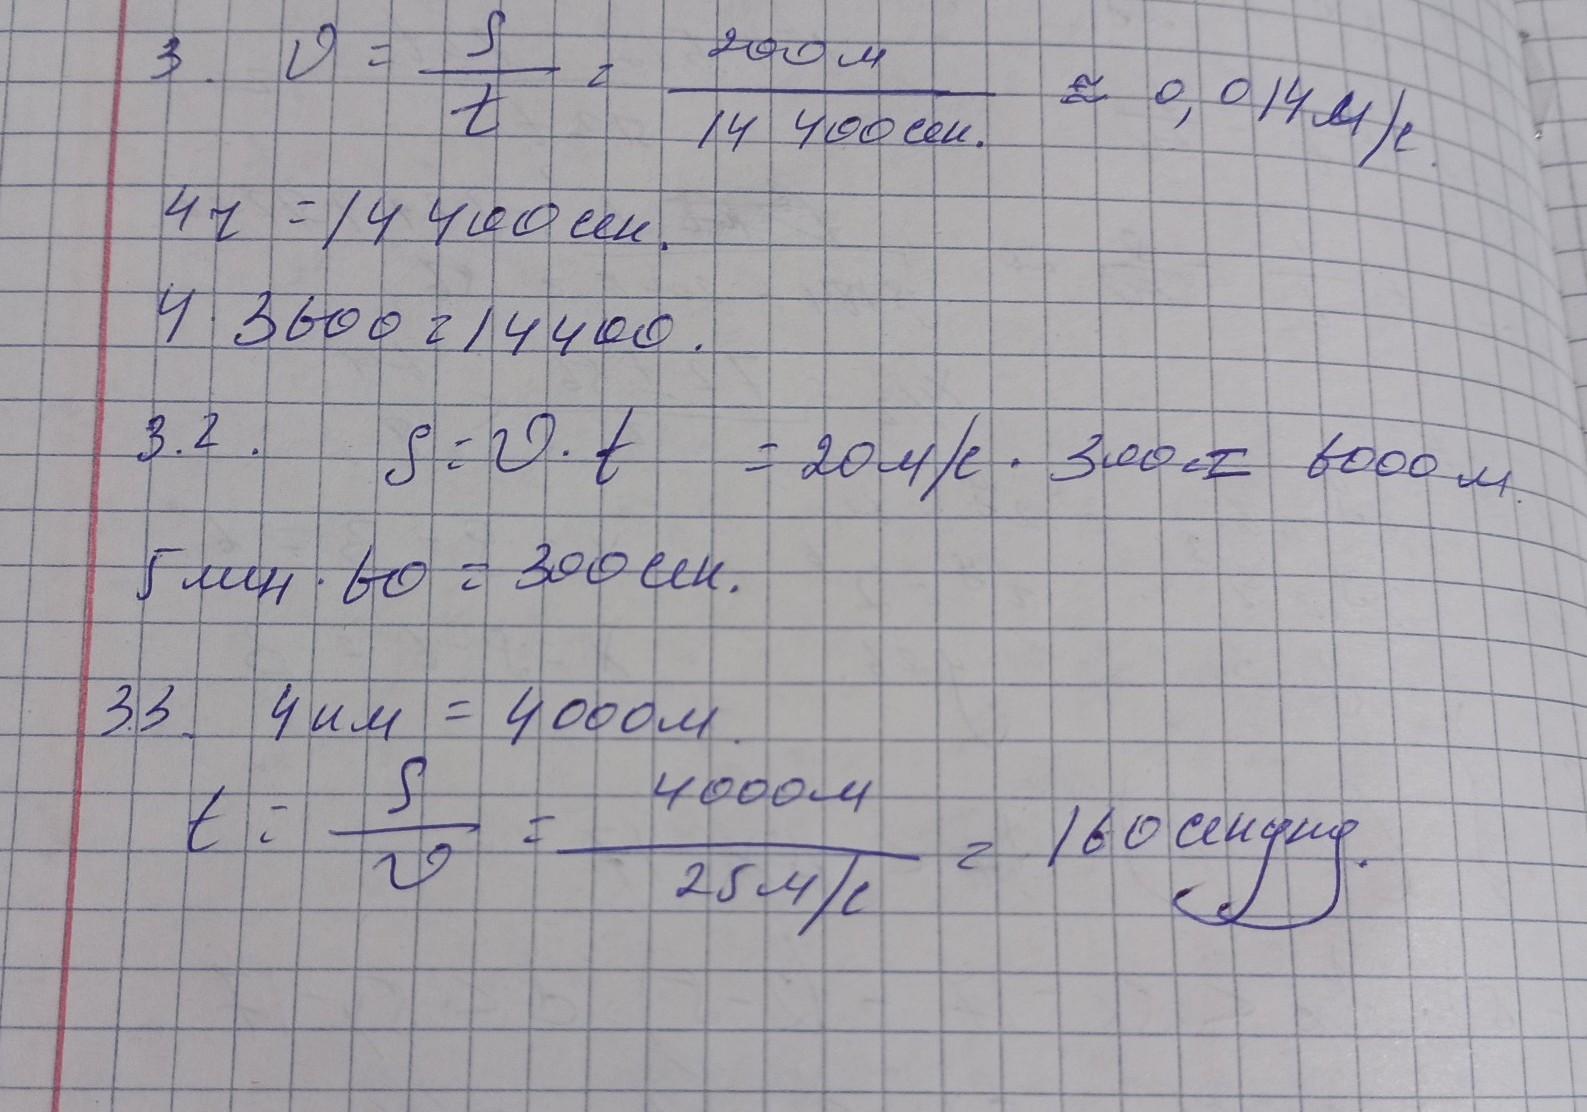 3. υ = S/t = 200м/14 400сек. ≈ 0,014м/с.
4ч = 14 400сек.
4 · 3600 = 14400.
3.2. S = υ · t = 20м/с · 300 = 6000м.
5мин · 60 = 300сек.
3.3. 4км = 4000м.
t = S/υ = 4000м/25м/с = 160секунд.